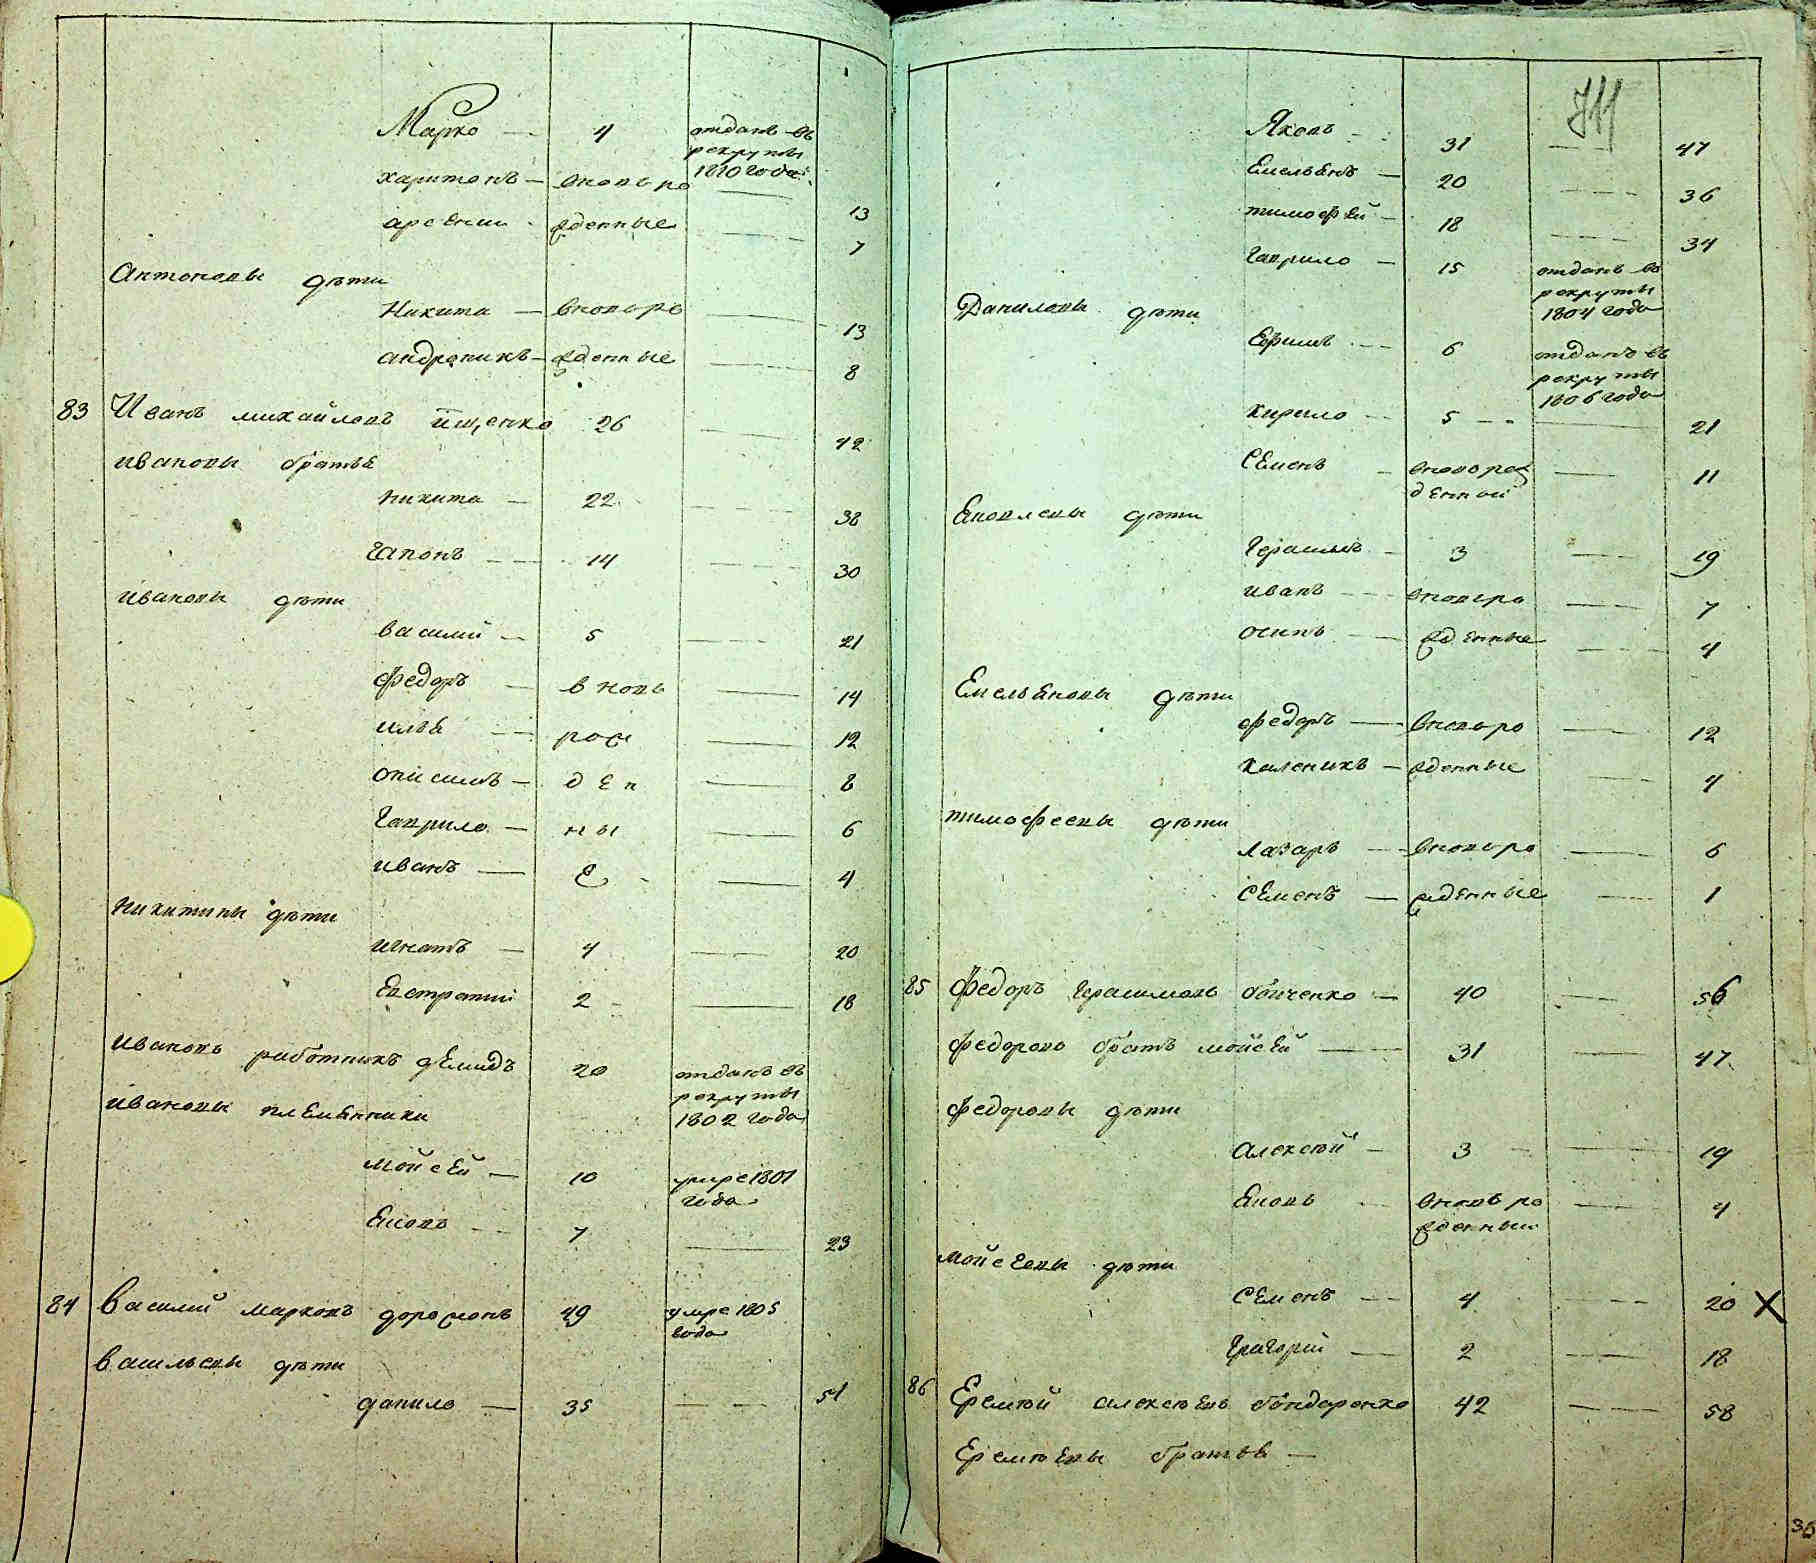 Марко — 4 отданъ въ
рекруты
1810 года
харитонъ — вновь ро 13
арсений — жденные 7
Антоновы дѣти
Никита — вновь ро 13
андроникъ — жденные 8
83 Иванъ михайловъ ищенко 26 42
ивановы братья
никита — 22 38
гапонъ — 14 30
ивановы дѣти
василий — 5 21
федоръ — вновь 14
илья — рож 12
онисимъ — ден 8
гаврило — ны 6
иванъ — е 4
никитины дѣти
игнатъ — 4 20
Евстратий 2 18
ивановъ работникъ демидъ 20 отданъ въ
рекруты
1802 года
ивановы племянники
мойсей — 10 умре 1801
года
яковъ — 7 23
84 василий марковъ дорожонъ 49 умре 1805
года
васильевы дѣти
данило — 35 51
Яковъ — 31 47
Емельянъ — 20 36
тимофѣй — 18 34
гаврило — 15 отданъ въ
рекруты
1804 года
Даниловы дѣти
Ефимъ — 6 отданъ въ
рекруты
1806 года
кирило — 5 21
семенъ — вноворож 11
денный
яковлевы дѣти
герасимъ — 3 19
иванъ — вновь ро 7
осипъ — жденные 4
Емельяновы дѣти
федоръ — вновь ро 12
каленикъ — жденные 4
тимофеевы дѣти
лазаръ — вновь ро 6
семенъ — жденные 1
85 федоръ герасимовъ бойченко — 40 56
федоровъ братъ мойсей — 31 47
федоровы дѣти
алексѣй — 3 19
яковъ — вновь ро 4
жденный
мойсеевы дѣти
семенъ — 4 20 X
григорий — 2 18
86 Еремѣй алексѣевъ бондаренко 42 58
Еремѣевы братья —